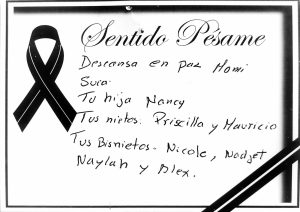 Sentido Pésame
Descansa en paz Momi
Sura.
Tu hija Nancy
Tus nietos: Priscilla y Mauricio
Tus Bisnietos. Nicole, Nadjet
Naylah y Alex.